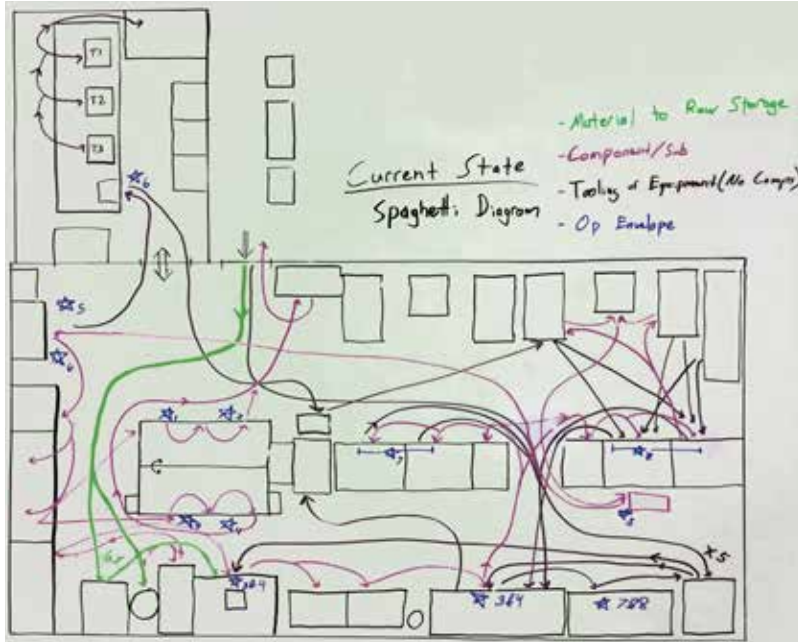 T1
T2
T3
Current State
Spaghetti Diagram
- Material to Raw Storage
- Component/Sub
- Tooling & Equipment (No Comps)
- Op Envelope
☆6
☆5
☆1
☆2
☆7
☆8
☆3
☆4
☆5
x5
☆3&4
☆3&4
☆7&8